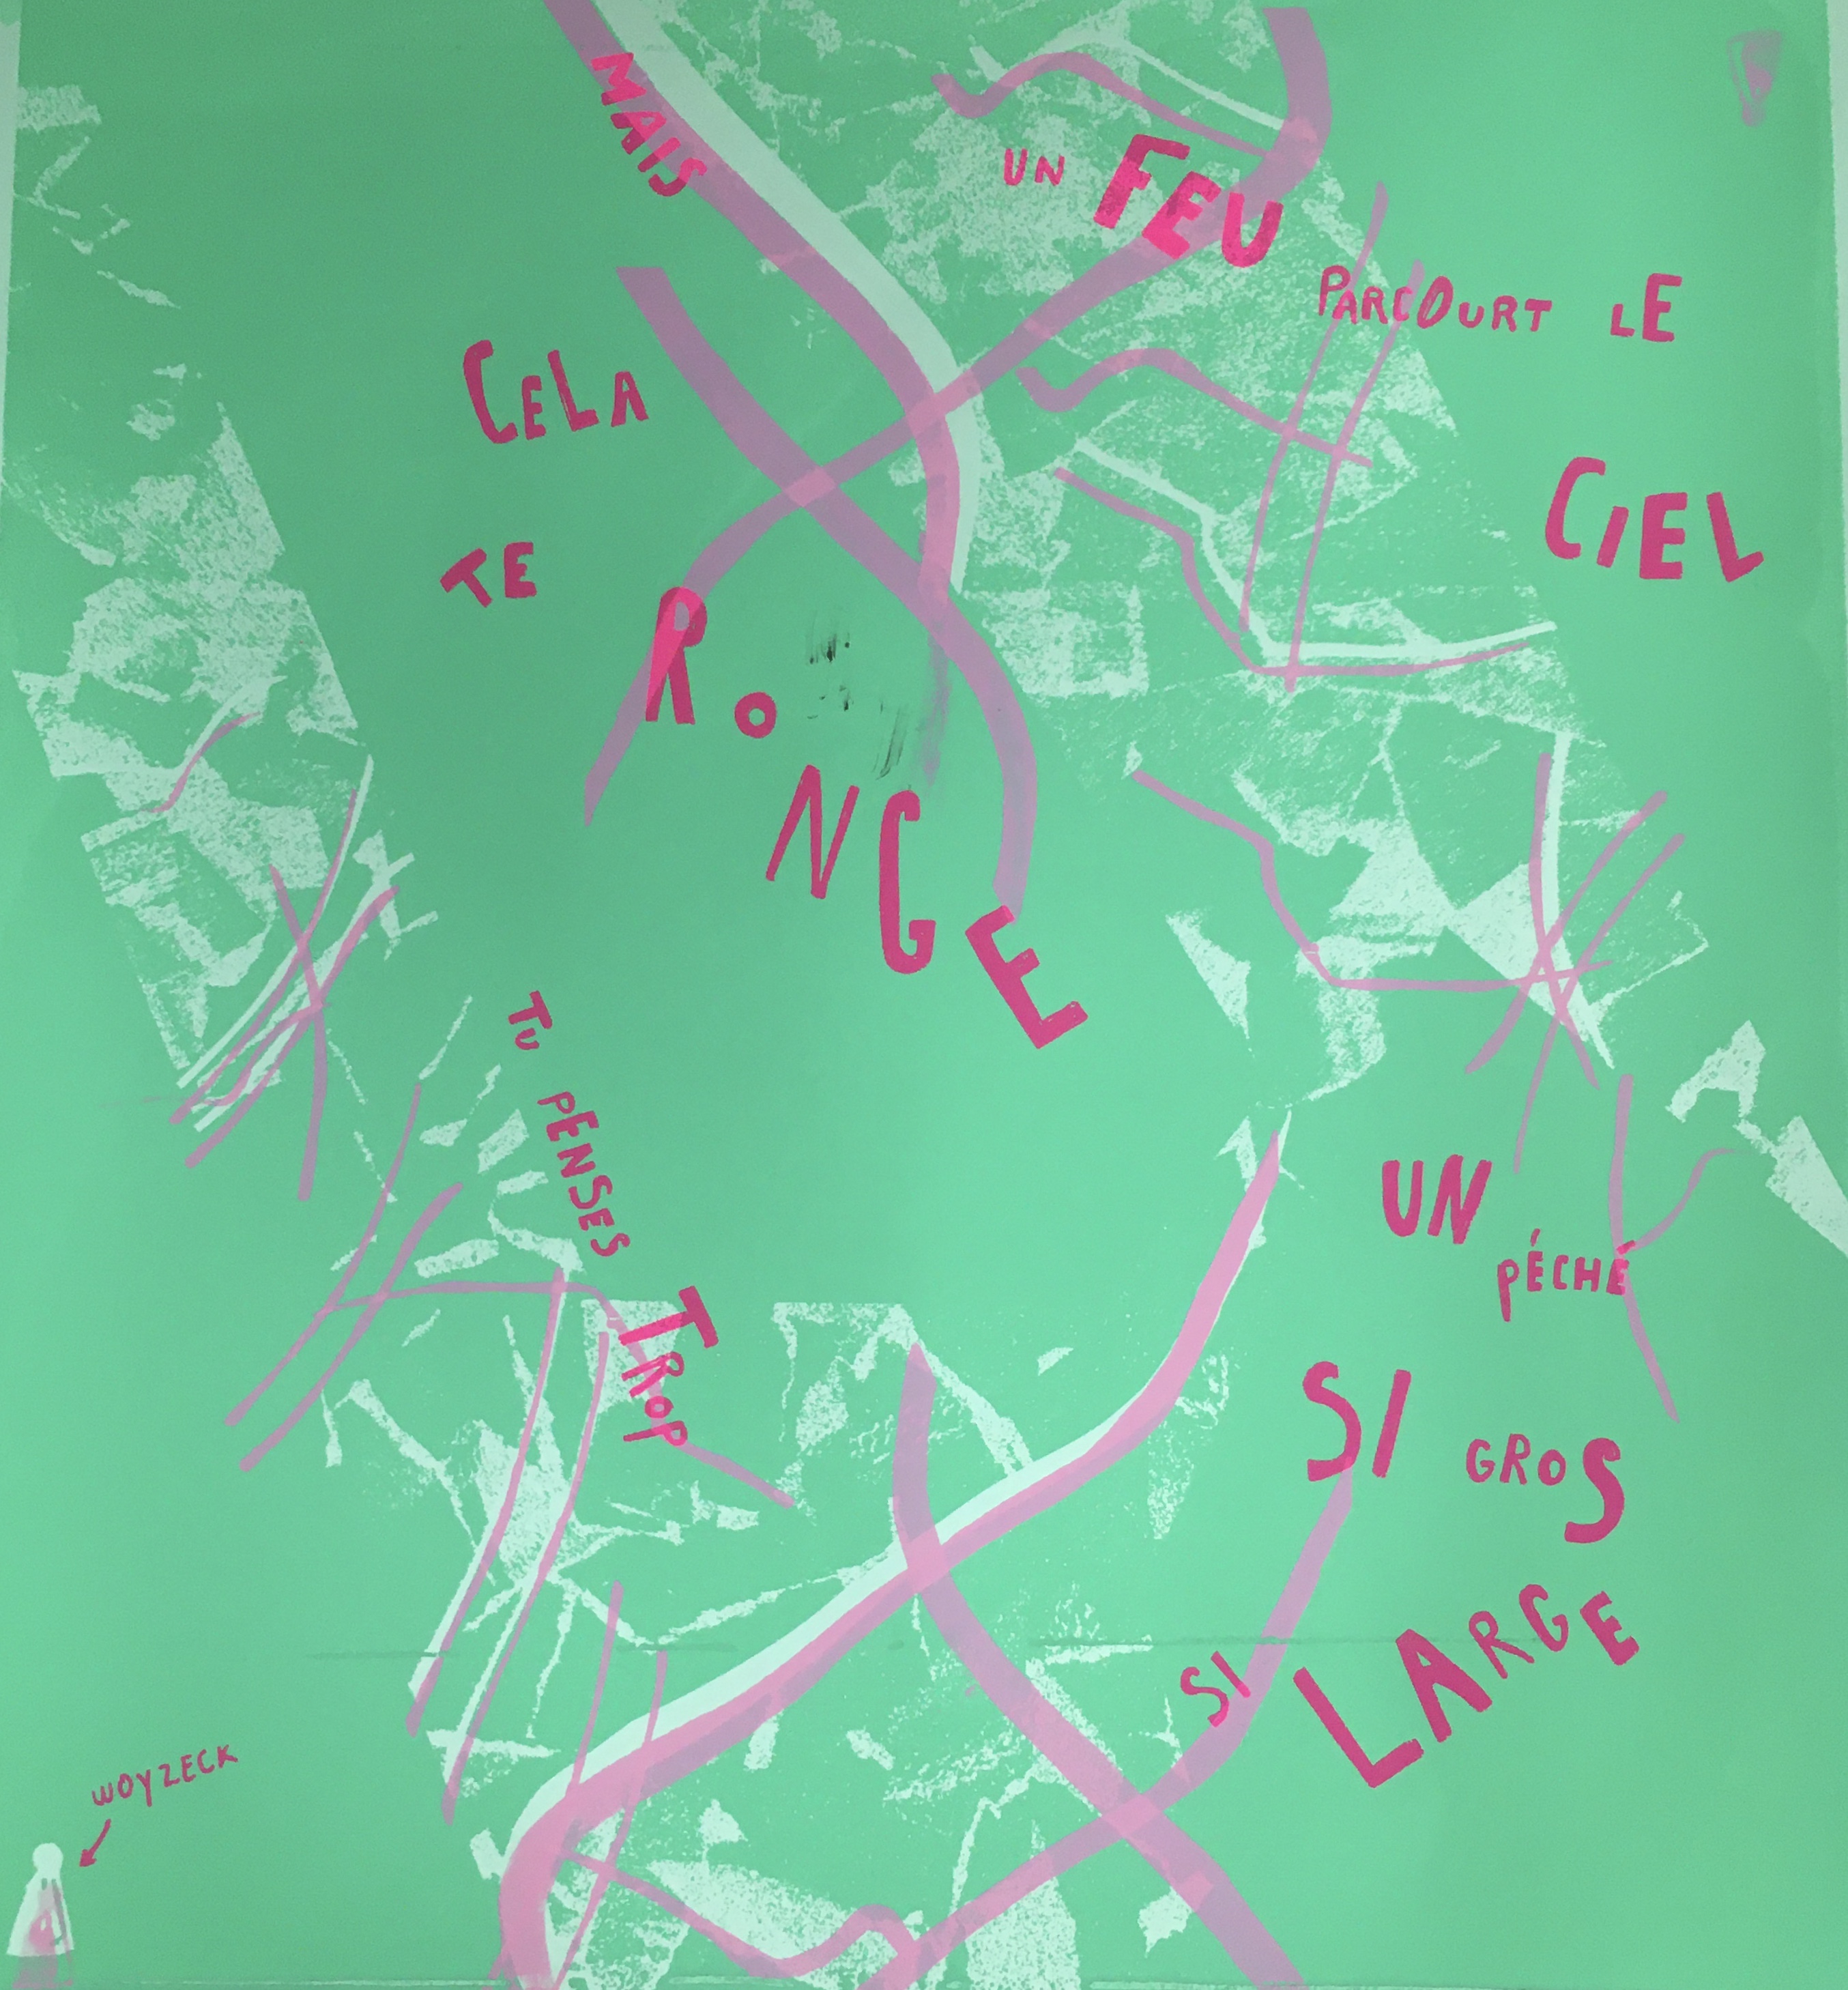 MAIS
CELA
TE
RONGE
TU PENSES
TROP
UN FEU
PARCOURT LE
CIEL
UN
PÉCHÉ
SI GROS
SI LARGE
WOYZECK